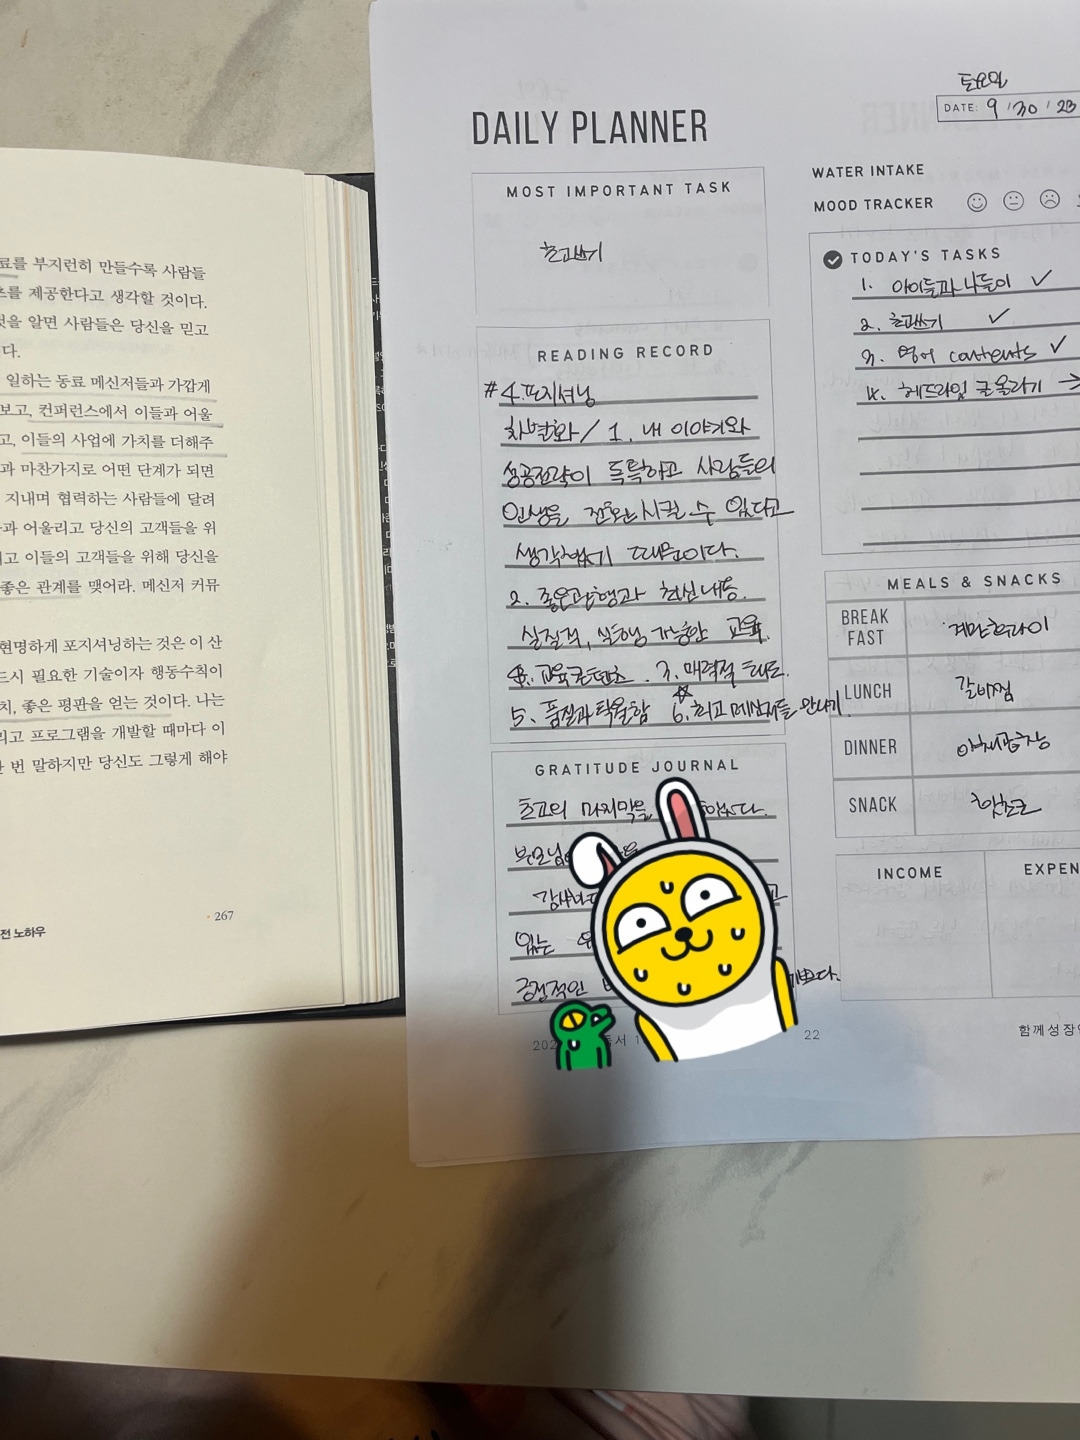 료를 부지런히 만들수록 사람들
를 제공한다고 생각할 것이다.
것을 알면 사람들은 당신을 믿고
다.
일하는 동료 메신저들과 가깝게
보고, 컨퍼런스에서 이들과 어울
고, 이들의 사업에 가치를 더해주
과 마찬가지로 어떤 단계가 되면
지내며 협력하는 사람들에 달려
과 어울리고 당신의 고객들을 위
리고 이들의 고객들을 위해 당신을
좋은 관계를 맺어라. 메신저 커뮤
현명하게 포지셔닝하는 것은 이 산
드시 필요한 기술이자 행동수칙이
치, 좋은 평판을 얻는 것이다. 나는
리고 프로그램을 개발할 때마다 이
한 번 말하지만 당신도 그렇게 해야
267
전 노하우
토요일
DATE: 9 / 30 / 23
DAILY PLANNER
MOST IMPORTANT TASK
초고쓰기
READING RECORD
#4. 포지셔닝
차별화 / 1. 내 이야기와
성공전략이 독특하고 사람들의
인생을 전환시킬 수 있다고
생각했기 때문이다.
2. 좋은관행과 혁신내용.
실질적, 실행 가능한 교육.
4. 교육콘텐츠. 3. 매력적 태도.
5. 품질과 탁월함 6. 최고 메신저들 만나기.
GRATITUDE JOURNAL
초고의 마지막을 하였다.
부모님
감사하
있는
긍정적인 기쁘다.
22
WATER INTAKE
MOOD TRACKER
TODAY'S TASKS
1. 아이들과 나들이 ✓
2. 초고쓰기 ✓
3. 영어 contents ✓
4. 헤드라잇 글 올리기 →
MEALS & SNACKS
BREAK FAST 계란후라이
LUNCH 갈비찜
DINNER 야채곱창
SNACK 핫초코
INCOME EXPEN
함께성장